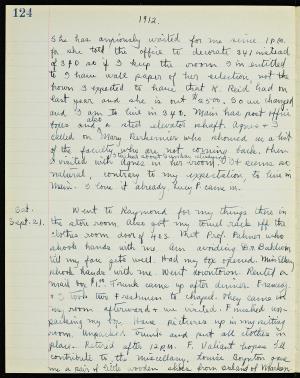 124
1912.
She has anxiously waited for me since 1 p.m.
for she told the office to decorate 341 instead
of 340 as if I keep the room I am entitled
to I have wall paper of her selection, not the
brown I expected to have that K. Reid had on
last year and she is out $25.00. So we changed
and I am to live in 340. Main has post office
boxes and also a steel elevator shaft. Agnes + I
called on Mary
of the faculty who are not coming back. Then
I visited with Agnes in her room. It seems so
natural, contrary to my expectation, to live in
Main. I love it already. Lucy P. came in.
Sat.
Sept. 21.
Went to Raymond for my things there in
the store room. Also got my towel rack off the
clothes room door of 405. Met Prof. Palmer who
shook hands with me. Am avoiding Dr. Baldwin
till my face gets well. Had my box opened. Miss
shook hands with me. Went downtown. Rented a
mail box $1.00. Trunk came up after dinner. Frances
+ I took two Freshmen to chapel. They came in
my room afterward + we visited. Finished un-
packing my box. Have pictures up in my sitting
room. Unpacked trunk and put all clothes in
place. Retired after 12 P.M. F. Valiant hopes I'll
contribute to the miscellany. Louise Boynton gave
me a pair of little wooden shoes from Island of Marken